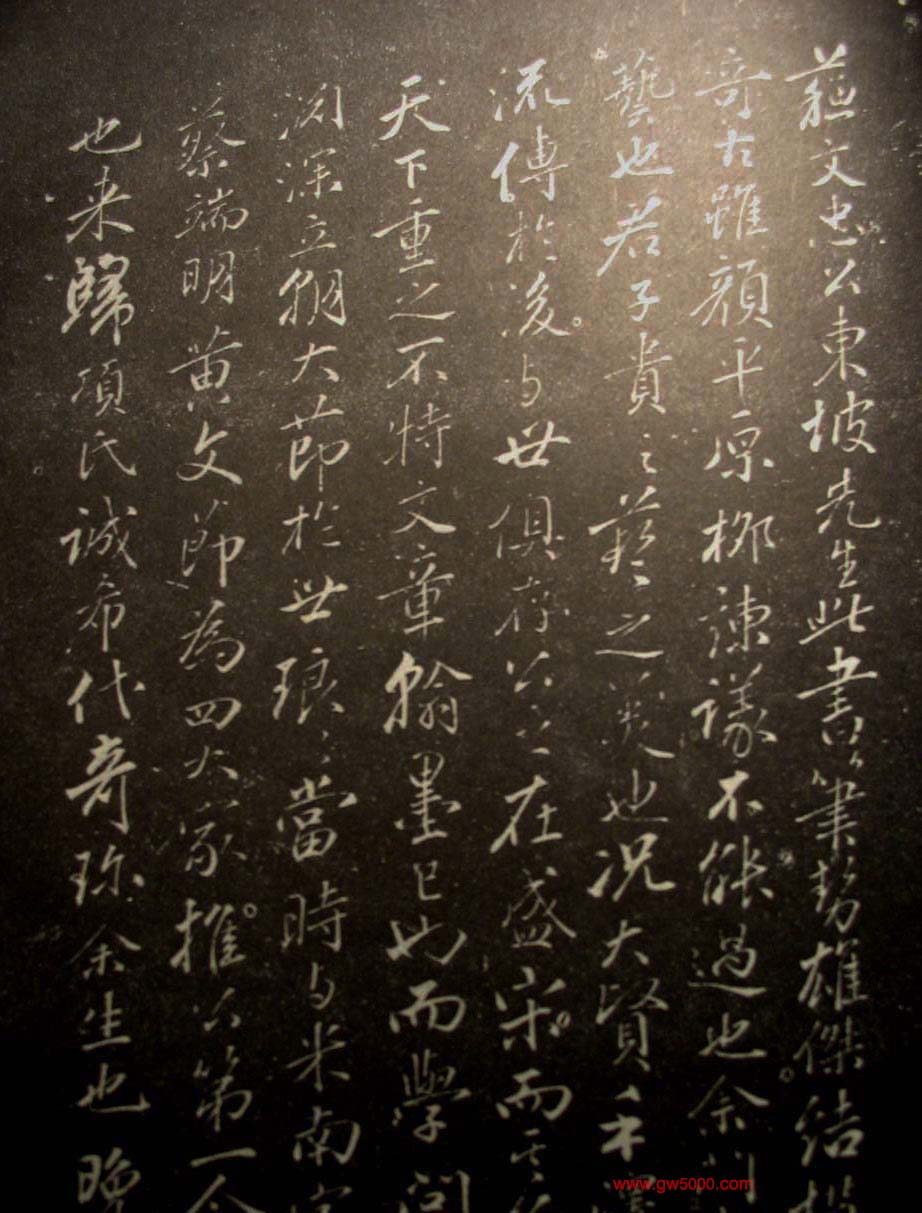 蘓文忠公東坡先生此書筆勢雄傑結構
奇古雖顔平原栁諫議不能過也余
藝也君子貴之藝之 也况大賢手澤
流傳於後与世俱存公之在盛宋而
天下重之不特文章翰墨已也而學問
渕深立朝大莭於世琅〻當時与米南宫
蔡端明黄文莭為四大家推公第一今
也来歸項氏誠希代奇珎余生也晚
www.gw5000.com